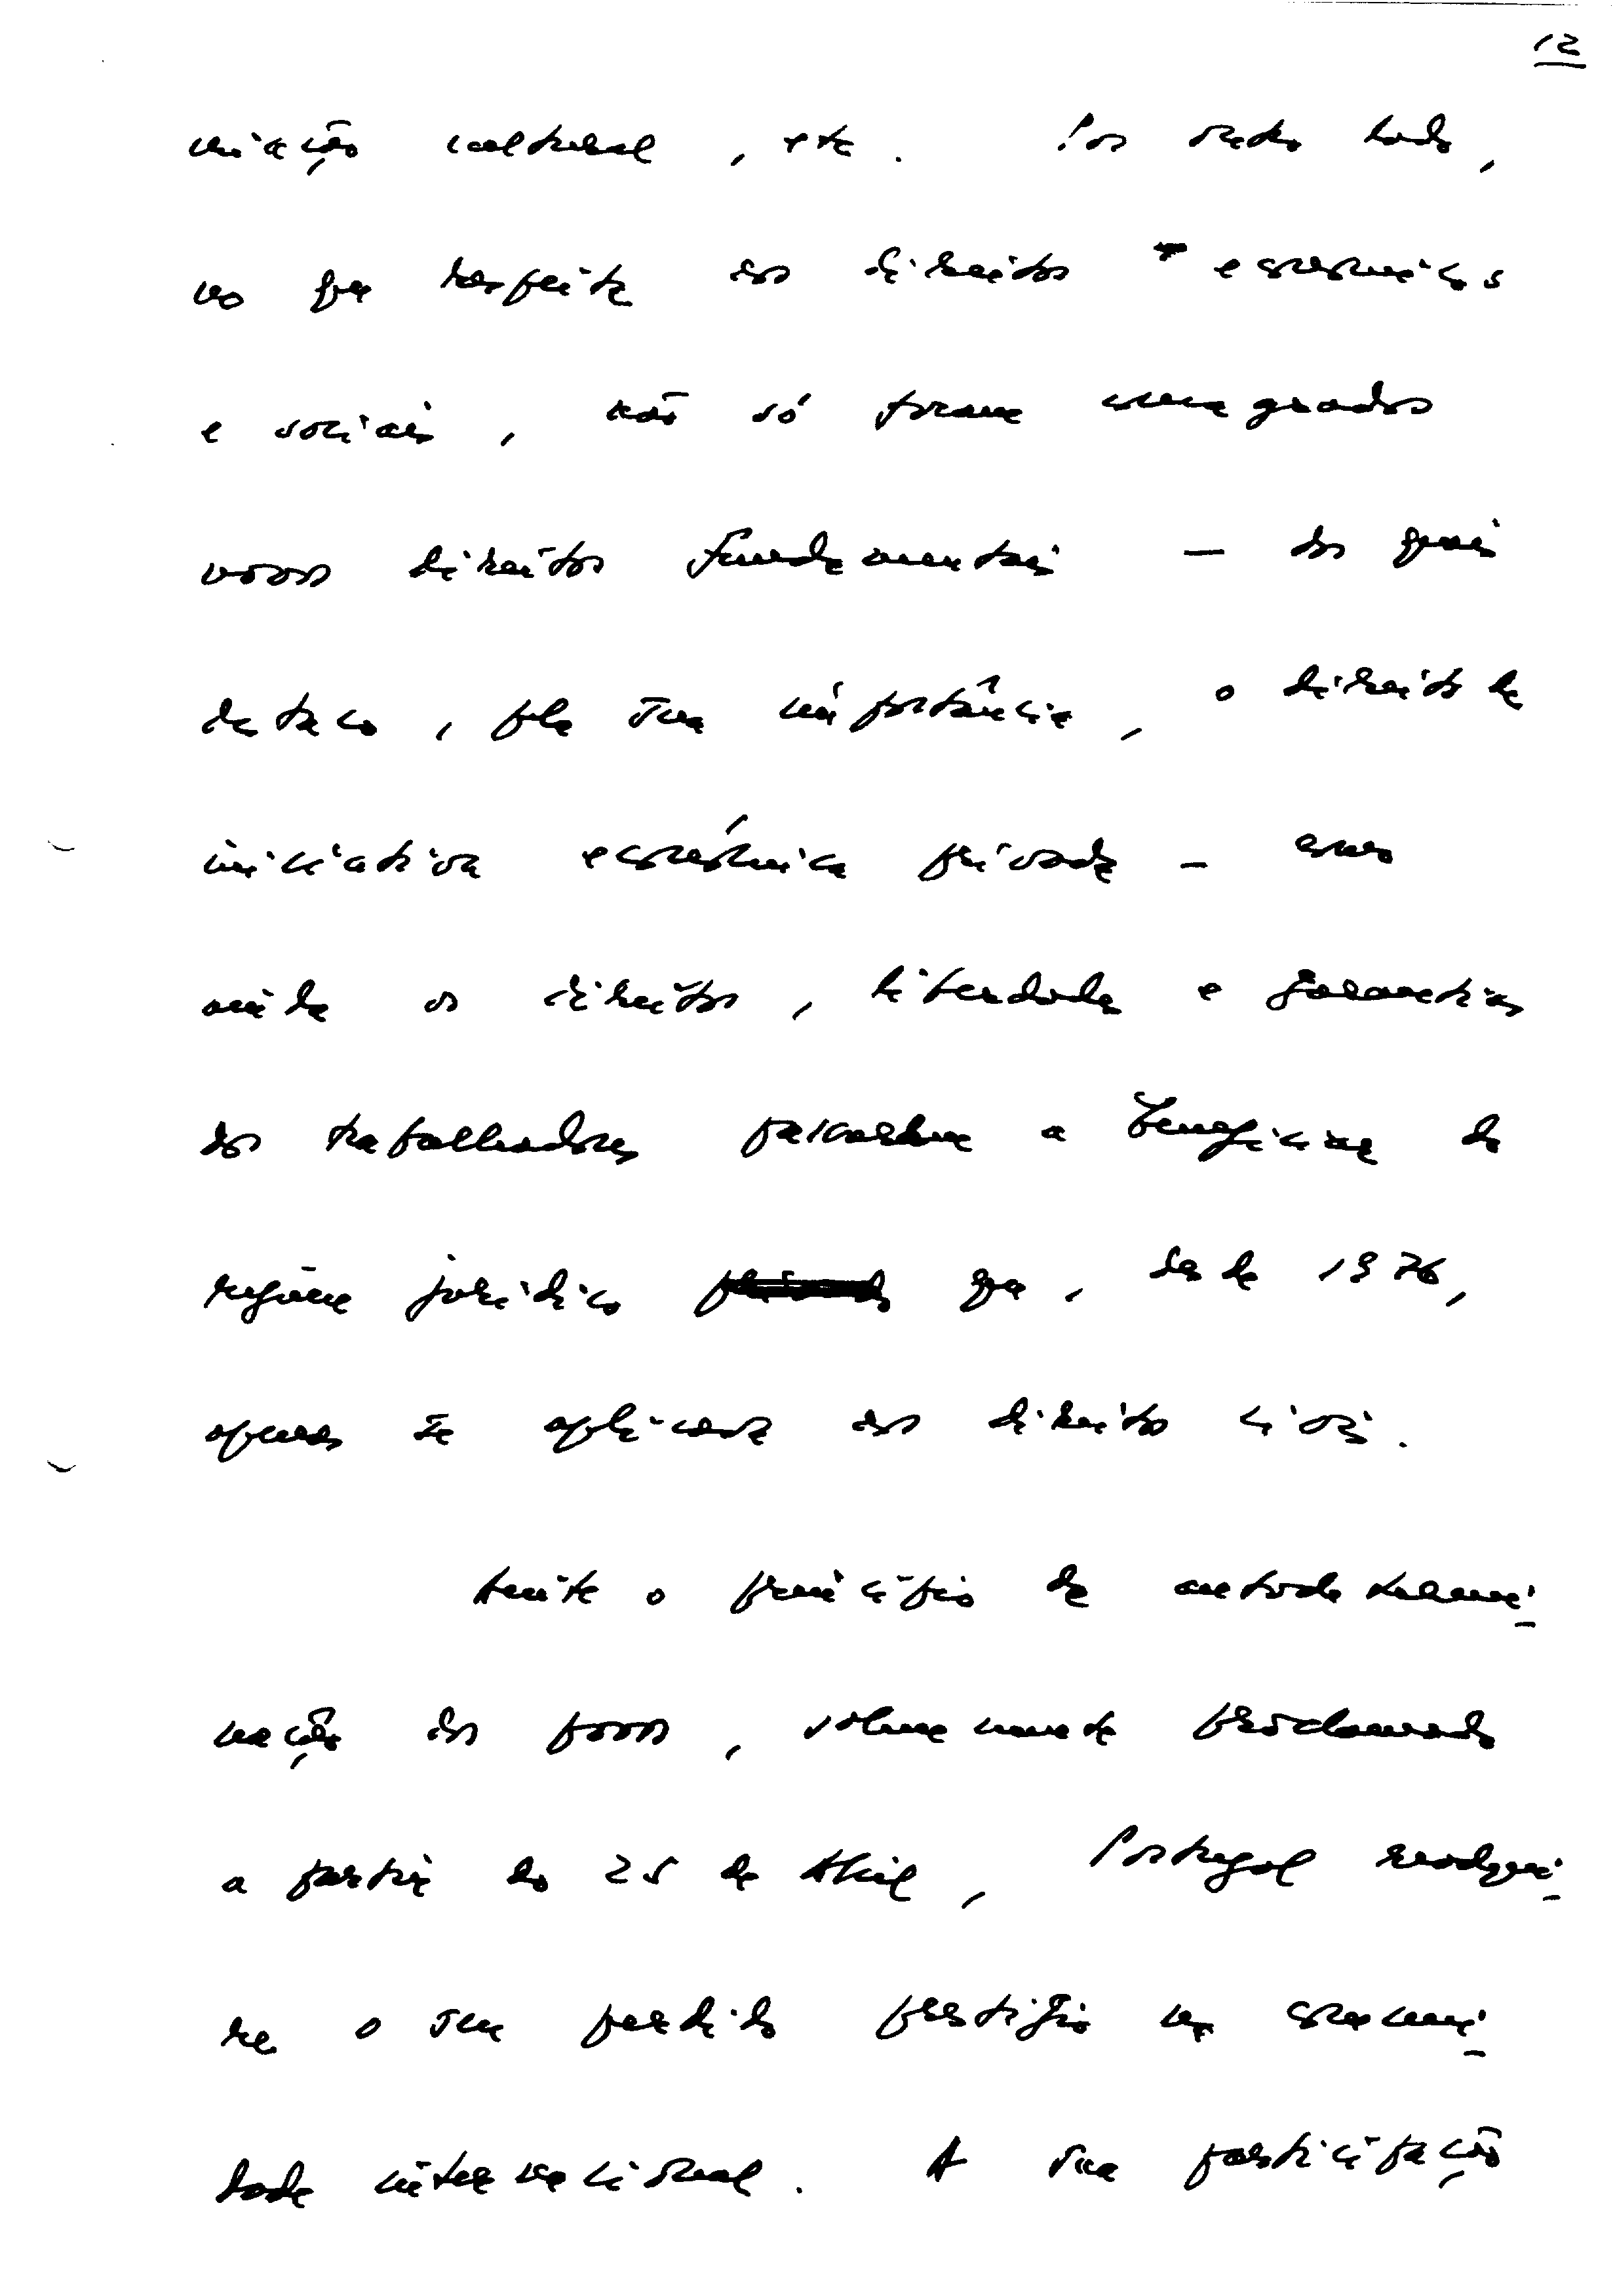 12
criação cultural, etc. Por outro lado,
no que respeita aos direitos económicos
e sociais, não só foram consagrados
novos direitos fundamentais — dos quais
destaco, pela sua importância, o direito de
iniciativa económica privada — como
ainda os direitos, liberdades e garantias
dos trabalhadores passaram a beneficiar do
regime jurídico que, desde 1976,
apenas se aplicava aos direitos civis.
o princípio da autodetermi-
nação dos povos, solenemente proclamado
a partir do 25 de Abril, Portugal readqui-
re o seu perdido prestígio na comuni-
dade internacional. A sua participação